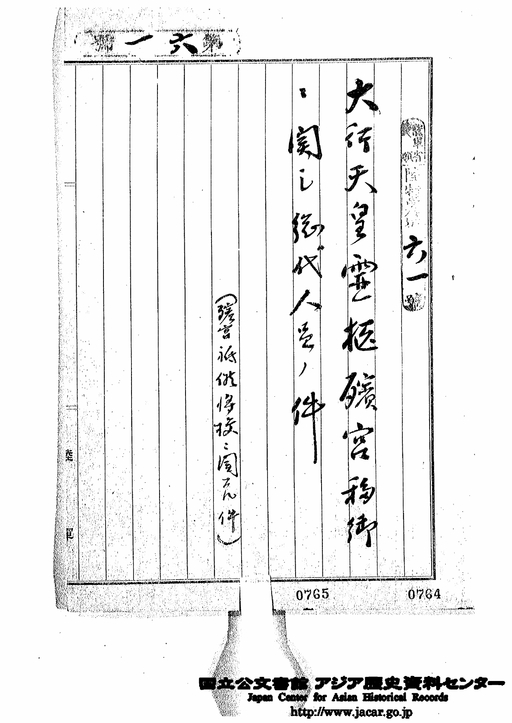 第六一號
六一
大行天皇霊柩殯宮移御
ニ関シ総代人員ノ件
（殯宮祗候将校ニ関スル件）
陸軍
0765
0764
国立公文書館 アジア歴史資料センター
Japan Center for Asian Historical Records
http://www.jacar.go.jp